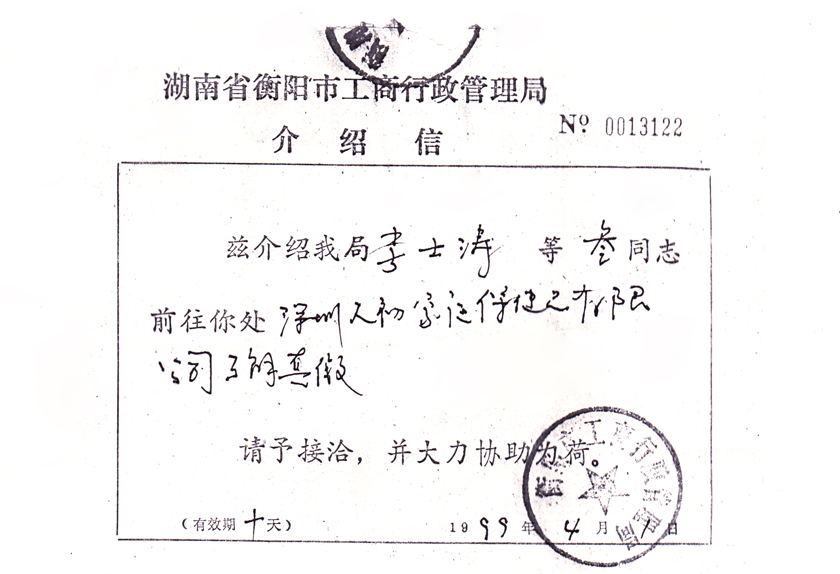 湖南省衡阳市工商行政管理局
介绍信
Nº 0013122
兹介绍我局李士涛等叁同志
前往你处深圳天初家庭保健品有限
公司了解真假
请予接洽，并大力协助为荷。
（有效期十天）
1999年4月1日
工商行政管理局